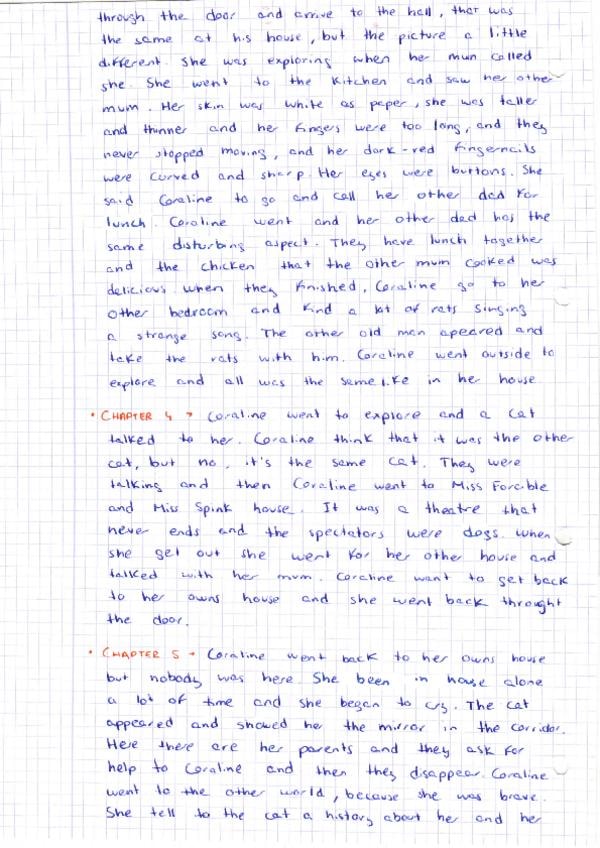 through the door and arrive to the hall, that was
the same at his house, but the picture a little
different. She was exploring when her mun called
she. She went to the kitchen and saw her other
mum. Her skin was white as paper, she was taller
and thinner and her fingers were too long, and they
never stopped moving, and her dark-red fingernails
were curved and sharp. Her eyes were buttons. She
said Coraline to go and call her other dad for
lunch. Coraline went and her other dad has the
same disturbing aspect. They have lunch together
and the chicken that the other mum cooked was
delicius. when they finished, Coraline go to her
other bedroom and find a lot of rats singing
a strange song. The other old man apeared and
take the rats with him. Coraline went outside to
explore and all was the same like in her house.
• CHAPTER 4 → Coraline went to explore and a cat
talked to her. Coraline think that it was the other
cat, but no, it's the same cat. They were
talking and then Coraline went to Miss Forcible
and Miss Spink house. It was a theatre that
never ends and the spectators were dogs. when
she get out she went for her other house and
talked with her mum. Coraline want to get back
to her owns house and she went back throught
the door.
• CHAPTER 5 → Coraline went back to her owns house
but nobody was here. She been in house alone
a lot of time and she began to cry. The cat
appeared and showed her the mirror in the corridor.
Here there are her parents and they ask for
help to Coraline and then they disappear. Coraline
went to the other world, because she was brave.
She tell to the cat a history about her and her